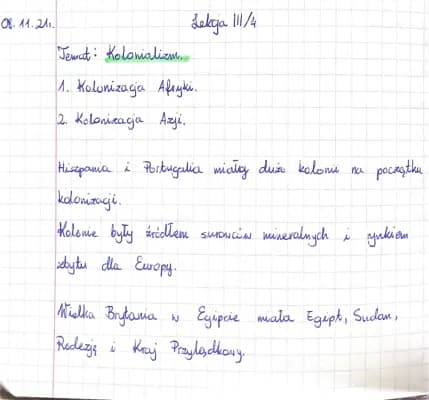 08.11.21r. Lekcja III/4
Temat: Kolonializm.
1. Kolonizacja Afryki.
2. Kolonizacja Azji.
Hiszpania i Portugalia miały dużo kolonii na początku
kolonizacji.
Kolonie były źródłem surowców mineralnych i rynkiem
zbytu dla Europy.
Wielka Brytania w Egipcie miała Egipt, Sudan,
Rodezję i Kraj Przylądkowy.